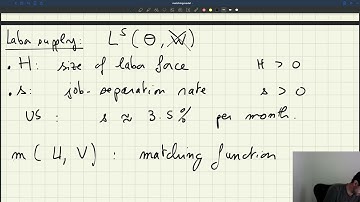 Labor supply: L^S (Θ, W)
• H: size of labor force H > 0
• s: job-separation rate s > 0
US : s ≈ 3.5% per month.
m ( U, V ) : matching function